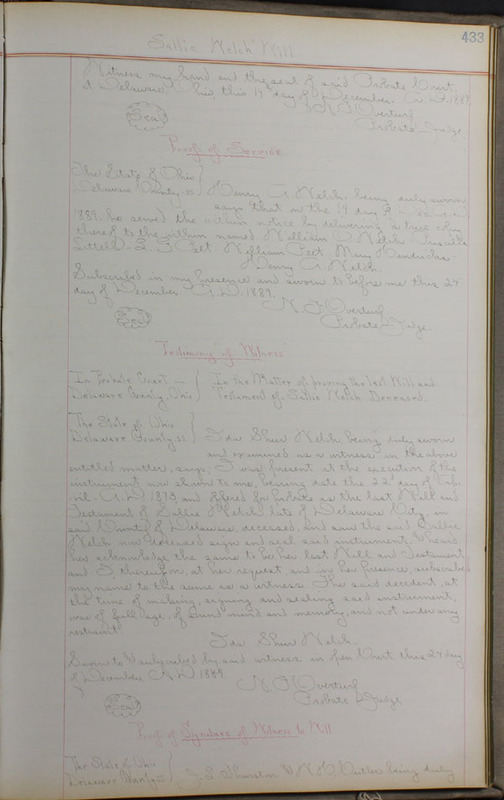 433
Sallie Welch Will
Witness my hand and the seal of said Probate Court,
at Delaware, Ohio, this 19 day of December, A.D. 1889.
Seal
Probate Judge.
Proof of Service
The State of Ohio
Delaware County, ss
Henry A. Welch, being duly sworn
says that on the 19 day of
1889, he served the within notice by delivering a true copy
thereof to the within named William Welch
William
Henry A. Welch.
Subscribed in my presence and sworn to before me this 27
day of December A.D. 1889.
Seal
Probate Judge.
Testimony of Witness
In Probate Court
Delaware County, Ohio
In the Matter of proving the last Will and
Testament of Sallie Welch Deceased.
The State of Ohio
Delaware County ss
Ida Shur Welch, being duly sworn
and examined as a witness in the above
entitled matter, says, I was present at the execution of the
instrument now shown to me, bearing date the 22 day of
A.D. 1879 and offered for probate as the last Will and
Testament of Sallie Welch late of Delaware City, in
said County of Delaware, deceased, and saw the said Sallie
Welch now deceased sign and seal said instrument, & heard
her acknowledge the same to be her last Will and Testament
and I, therefore, at her request, and in her presence, subscribed
my name to the same as a witness. The said decedent, at
the time of making, signing and sealing said instrument,
was of full age, of sound mind and memory, and not under any
restraint.
Ida Shur Welch.
Sworn to & subscribed by said witness in open Court this 27 day
of December A.D. 1889.
Probate Judge
Seal
Proof of Signature of Witness to Will
The State of Ohio
Delaware County ss
being duly